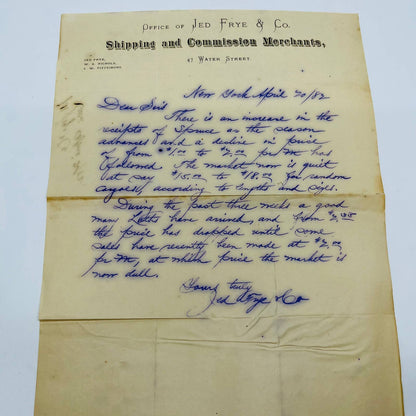 OFFICE OF JED FRYE & CO.
Shipping and Commission Merchants,
47 WATER STREET.
JED FRYE,
W. S. NICHOLS,
New York April 20/82
Dear Sirs
There is an increase in the
receipts of Spruce as the season
advances and a decline in price
of from $1.00 to $2.00 per M has
followed. The market now is quiet
at say $15.00 to $18.00 for random
cargoes, according to lengths and sizes.
During the past three weeks a good
many Laths have arrived, and from
the price has dropped until some
sales have recently been made at $2.00
per M, at which price the market is
now dull.
Yours truly
Jed Frye & Co